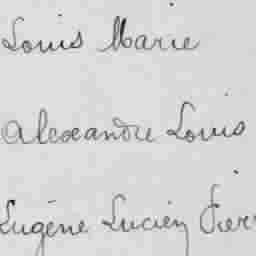 Louis Marie
Alexandre Louis
Eugène Lucien